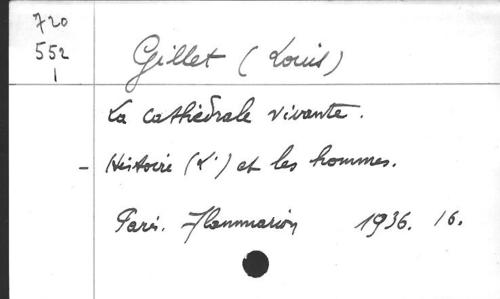 720
552
1
Gillet (Louis)
La cathédrale vivante.
- Histoire (L') et les hommes.
Paris. Flammarion 1936. 16.